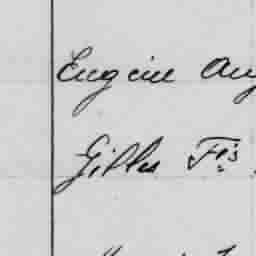 Eugène Aug
Gilles Fçis